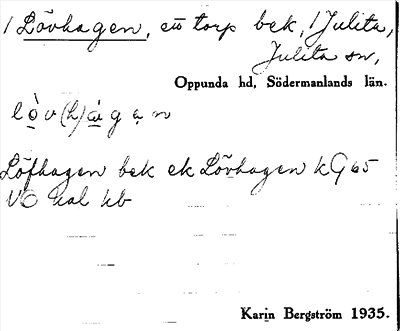 1 Lövhagen, ett torp bek, i Julita,
Julita sn,
Oppunda hd, Södermanlands län.
lò̱v(h)á̱gạn
Löfhagen bek ek Lövhagen kG 65
hb
Karin Bergström 1935.